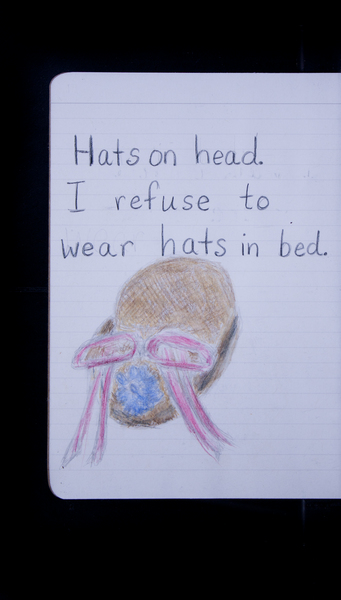 Hats on head.
I refuse to
wear hats in bed.